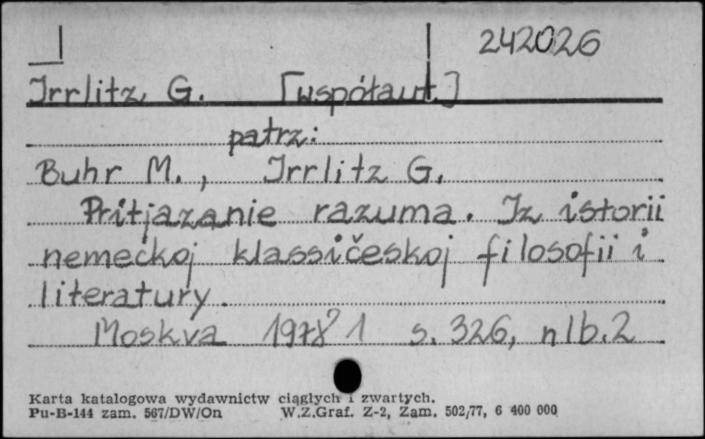 242026
Irrlitz G. [współaut.]
patrz:
Buhr M., Irrlitz G.
Pritjazanie razuma. Iz istorii
nemeckoj klassičeskoj filosofii i
literatury.
Moskva 1978 1 s. 326, nlb. 2
Karta katalogowa wydawnictw ciągłych i zwartych.
Pu-B-144 zam. 567/DW/On W.Z.Graf. Z-2, Zam. 502/77, 6 400 000